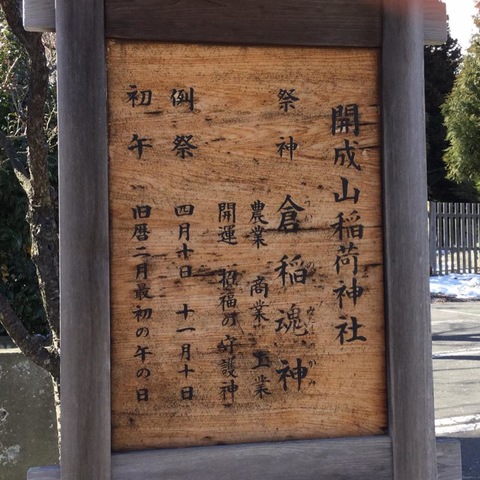 開成山稲荷神社
祭神 倉稲魂神
農業 商業 工業
開運 招福の守護神
例祭 四月十日 十一月十日
初午 旧暦二月最初の午の日